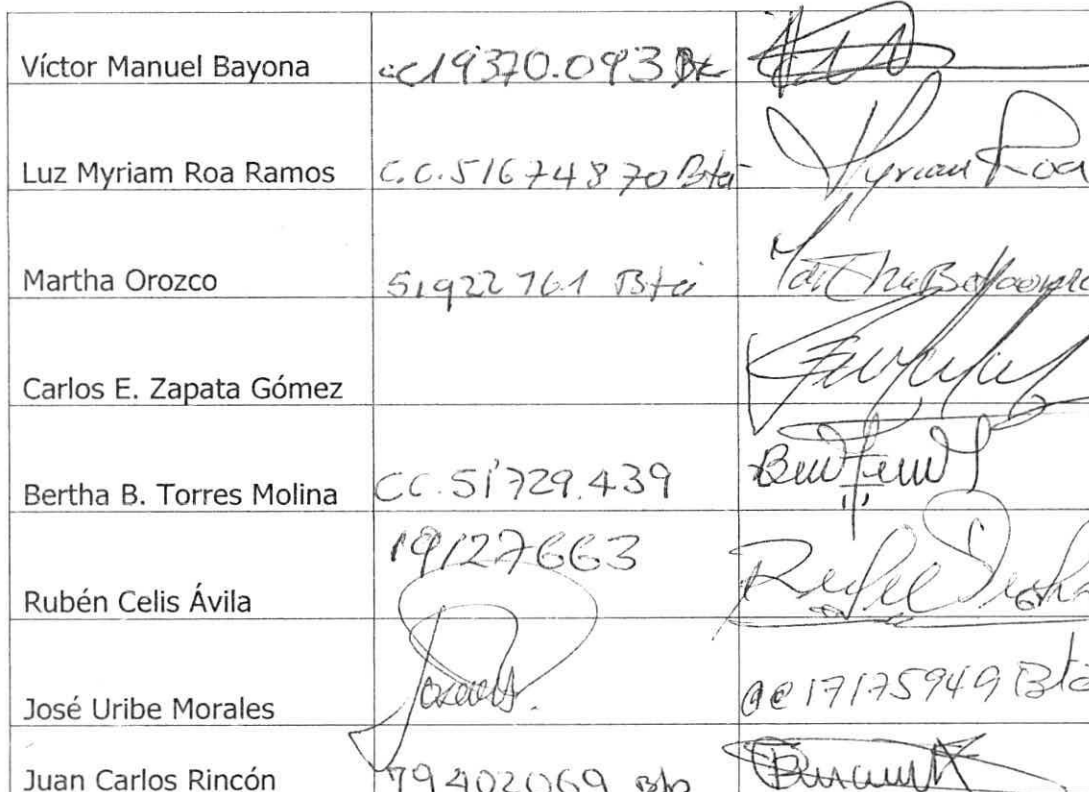 Víctor Manuel Bayona cc 19370.093 Bta
Luz Myriam Roa Ramos C.C. 51674870 Bta Myriam Roa
Martha Orozco 51922761 Bta
Carlos E. Zapata Gómez
Bertha B. Torres Molina CC. 51729.439
Rubén Celis Ávila 19127663
José Uribe Morales cc 17175949 Bta
Juan Carlos Rincón 79402069 Bta